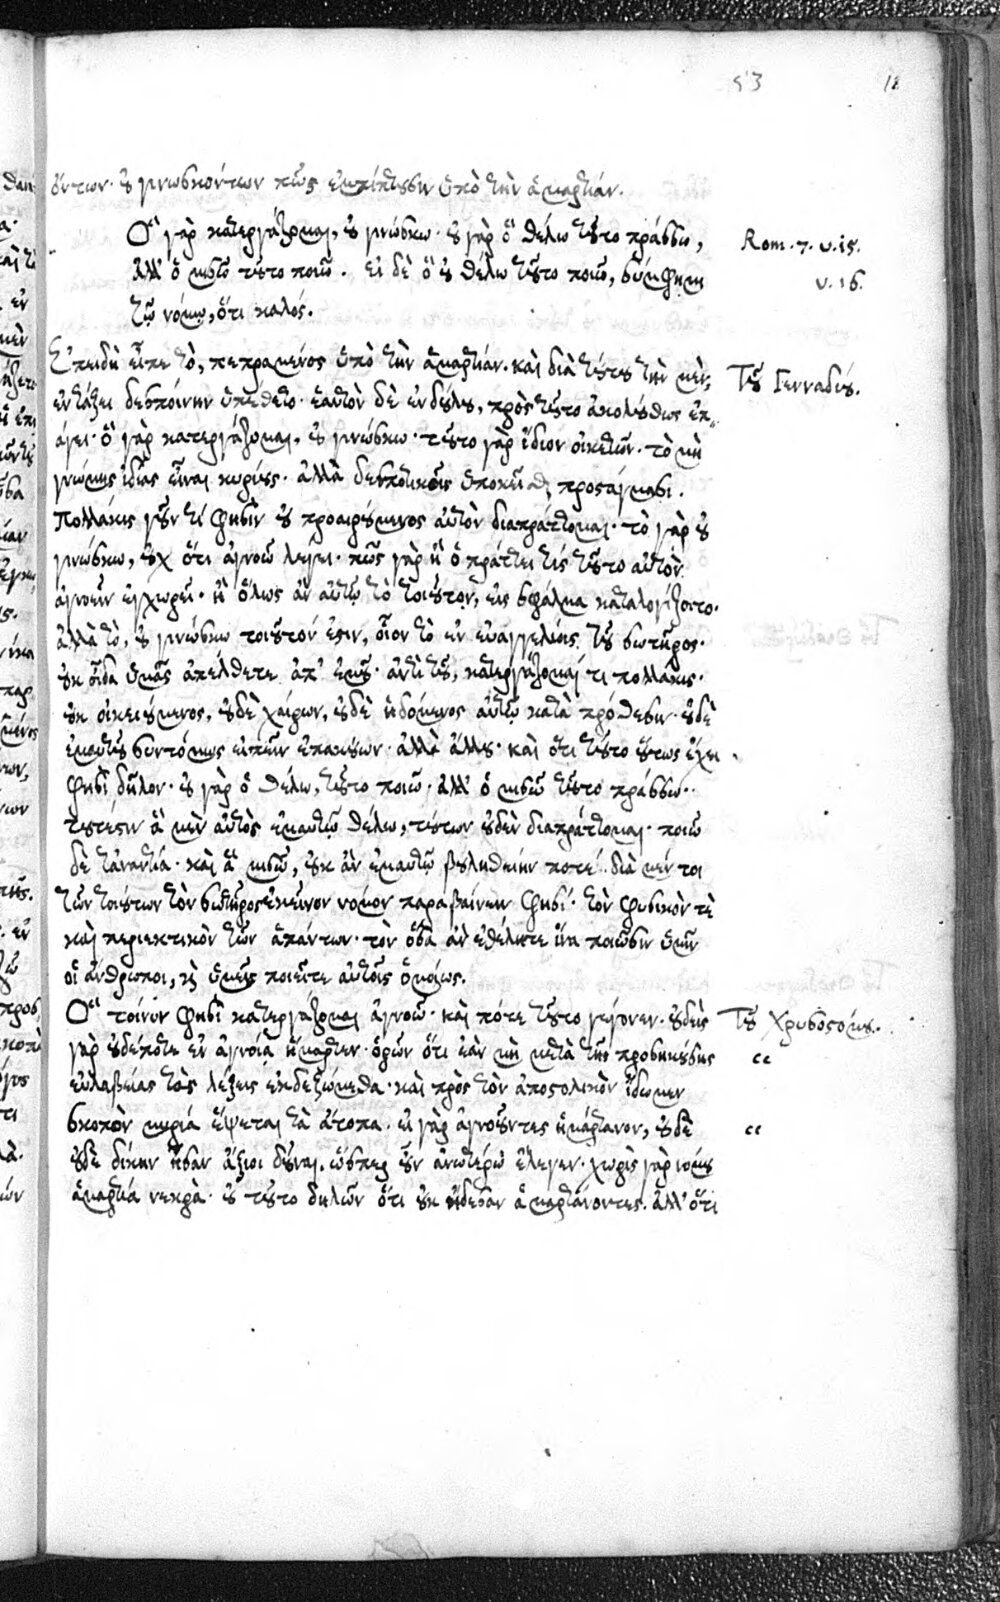 53
όντων· οὐ γινωσκόντων πῶς ἐμπίπτουσιν ὑπὸ τὴν ἁμαρτίαν.
Ὃ γὰρ κατεργάζομαι, οὐ γινώσκω· οὐ γὰρ ὃ θέλω τοῦτο πράσσω, Rom. 7. v. 15.
ἀλλ' ὃ μισῶ τοῦτο ποιῶ. εἰ δὲ ὃ οὐ θέλω τοῦτο ποιῶ, σύμφημι v. 16.
τῷ νόμῳ, ὅτι καλός.
Ἐπειδὴ εἶπε τὸ, πεπραμένος ὑπὸ τὴν ἁμαρτίαν. καὶ διὰ τούτου τὴν μὲν Τοῦ Γενναδίου.
ἐν τάξει δεσποίνην ὑπέθετο· ἑαυτὸν δὲ ἐν δούλου, πρὸς τοῦτο ἀκολούθως ἐπ
άγει· ὃ γὰρ κατεργάζομαι, οὐ γινώσκω· τοῦτο γὰρ ἴδιον οἰκετῶν· τὸ μὴ
γνώμης ἰδίας εἶναι κυρίους· ἀλλὰ δεσποτικοῖς ὑποκεῖσθαι προστάγμασι.
Πολλάκις γοῦν τί φησὶν οὐ προαιρούμενος αὐτὸν διαπράττομαι· τὸ γὰρ οὐ
γινώσκω, οὐχ ὅτι ἀγνοῶ λέγει· πῶς γὰρ ἢ ὃ πράττει τίς τοῦτο αὐτὸν
ἀγνοεῖν ἐγχωρεῖ· ἢ ὅλως ἂν αὐτῷ τὸ τοιοῦτον, εἰς σφάλμα καταλογίζοιτο.
ἀλλὰ τὸ, οὐ γινώσκω τοιοῦτόν ἐστιν, οἷον τὸ ἐν εὐαγγελίοις τοῦ σωτῆρος·
οὐκ οἶδα ὑμᾶς ἀπέλθετε ἀπ' ἐμοῦ· ἀντὶ τοῦ, κατεργάζομαί τι πολλάκις·
οὐκ οἰκειούμενος, οὐδὲ χαίρων, οὐδὲ ἡδόμενος αὐτῷ κατὰ πρόθεσιν· οὐδὲ
ἐμαυτοῦ συντόμως εἰπεῖν ἐπακούων· ἀλλὰ ἄλλου· καὶ ὅτι τοῦτο οὕτως ἔχει
φησὶ δῆλον· οὐ γὰρ ὃ θέλω, τοῦτο ποιῶ· ἀλλ' ὃ μισῶ τοῦτο πράσσω·
τουτέστιν ἃ μὲν αὐτὸς ἐμαυτῷ θέλω, τούτων οὐδὲν διαπράττομαι· ποιῶ
δὲ τἀναντία· καὶ ἃ μισῶ, οὐκ ἂν ἐμαυτῷ βουληθείην ποτέ· διὰ μέν τοι
τῶν τοιούτων τὸν σωτῆρος ἐκεῖνον νόμον παραβαίνειν φησί· τὸν φυσικόν τε
καὶ περιεκτικὸν τῶν ἁπάντων· τὸν ὅσα ἂν ἐθέλητε ἵνα ποιῶσιν ὑμῖν
οἱ ἄνθρωποι, καὶ ὑμεῖς ποιεῖτε αὐτοῖς ὁμοίως.
Ὃ τοίνυν φησὶ κατεργάζομαι ἀγνοῶ· καὶ πότε τοῦτο γέγονεν· οὐδεὶς Τοῦ Χρυσοστόμου.
γὰρ οὐδέποτε ἐν ἀγνοίᾳ ἥμαρτεν· ὁρῶν ὅτι ἐὰν μὴ μετὰ τῆς προσηκούσης “
εὐλαβείας τὰς λέξεις ἐκδεξώμεθα· καὶ πρὸς τὸν ἀποστολικὸν ἴδωμεν
σκοπὸν μυρία ἕψεται τὰ ἄτοπα. εἰ γὰρ ἀγνοοῦντες ἡμάρτανον, οὐδὲ “
οὐδὲ δίκην ἦσαν ἄξιοι δοῦναι. ὥσπερ οὖν ἀνωτέρω ἔλεγεν· χωρὶς γὰρ νόμου
ἁμαρτία νεκρά· οὐ τοῦτο δηλῶν ὅτι οὐκ ᾔδεσαν ἁμαρτάνοντες. ἀλλ' ὅτι